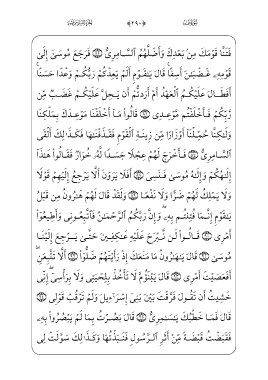 فَتَنَّا قَوْمَكَ مِنۢ بَعْدِكَ وَأَضَلَّهُمُ ٱلسَّامِرِىُّ ۝ فَرَجَعَ مُوسَىٰٓ إِلَىٰ
قَوْمِهِۦ غَضْبَٰنَ أَسِفًا ۚ قَالَ يَٰقَوْمِ أَلَمْ يَعِدْكُمْ رَبُّكُمْ وَعْدًا حَسَنًا ۚ
أَفَطَالَ عَلَيْكُمُ ٱلْعَهْدُ أَمْ أَرَدتُّمْ أَن يَحِلَّ عَلَيْكُمْ غَضَبٌ مِّن
رَّبِّكُمْ فَأَخْلَفْتُم مَّوْعِدِى ۝ قَالُوا۟ مَآ أَخْلَفْنَا مَوْعِدَكَ بِمَلْكِنَا
وَلَٰكِنَّا حُمِّلْنَآ أَوْزَارًا مِّن زِينَةِ ٱلْقَوْمِ فَقَذَفْنَٰهَا فَكَذَٰلِكَ أَلْقَى
ٱلسَّامِرِىُّ ۝ فَأَخْرَجَ لَهُمْ عِجْلًا جَسَدًا لَّهُۥ خُوَارٌ فَقَالُوا۟ هَٰذَآ
إِلَٰهُكُمْ وَإِلَٰهُ مُوسَىٰ فَنَسِىَ ۝ أَفَلَا يَرَوْنَ أَلَّا يَرْجِعُ إِلَيْهِمْ قَوْلًا
وَلَا يَمْلِكُ لَهُمْ ضَرًّا وَلَا نَفْعًا ۝ وَلَقَدْ قَالَ لَهُمْ هَٰرُونُ مِن قَبْلُ
يَٰقَوْمِ إِنَّمَا فُتِنتُم بِهِۦ ۖ وَإِنَّ رَبَّكُمُ ٱلرَّحْمَٰنُ فَٱتَّبِعُونِى وَأَطِيعُوٓا۟
أَمْرِى ۝ قَالُوا۟ لَن نَّبْرَحَ عَلَيْهِ عَٰكِفِينَ حَتَّىٰ يَرْجِعَ إِلَيْنَا
مُوسَىٰ ۝ قَالَ يَٰهَٰرُونُ مَا مَنَعَكَ إِذْ رَأَيْتَهُمْ ضَلُّوٓا۟ ۝ أَلَّا تَتَّبِعَنِ ۖ
أَفَعَصَيْتَ أَمْرِى ۝ قَالَ يَبْنَؤُمَّ لَا تَأْخُذْ بِلِحْيَتِى وَلَا بِرَأْسِىٓ ۖ إِنِّى
خَشِيتُ أَن تَقُولَ فَرَّقْتَ بَيْنَ بَنِىٓ إِسْرَٰٓءِيلَ وَلَمْ تَرْقُبْ قَوْلِى ۝
قَالَ فَمَا خَطْبُكَ يَٰسَٰمِرِىُّ ۝ قَالَ بَصُرْتُ بِمَا لَمْ يَبْصُرُوا۟ بِهِۦ
فَقَبَضْتُ قَبْضَةً مِّنْ أَثَرِ ٱلرَّسُولِ فَنَبَذْتُهَا وَكَذَٰلِكَ سَوَّلَتْ لِى